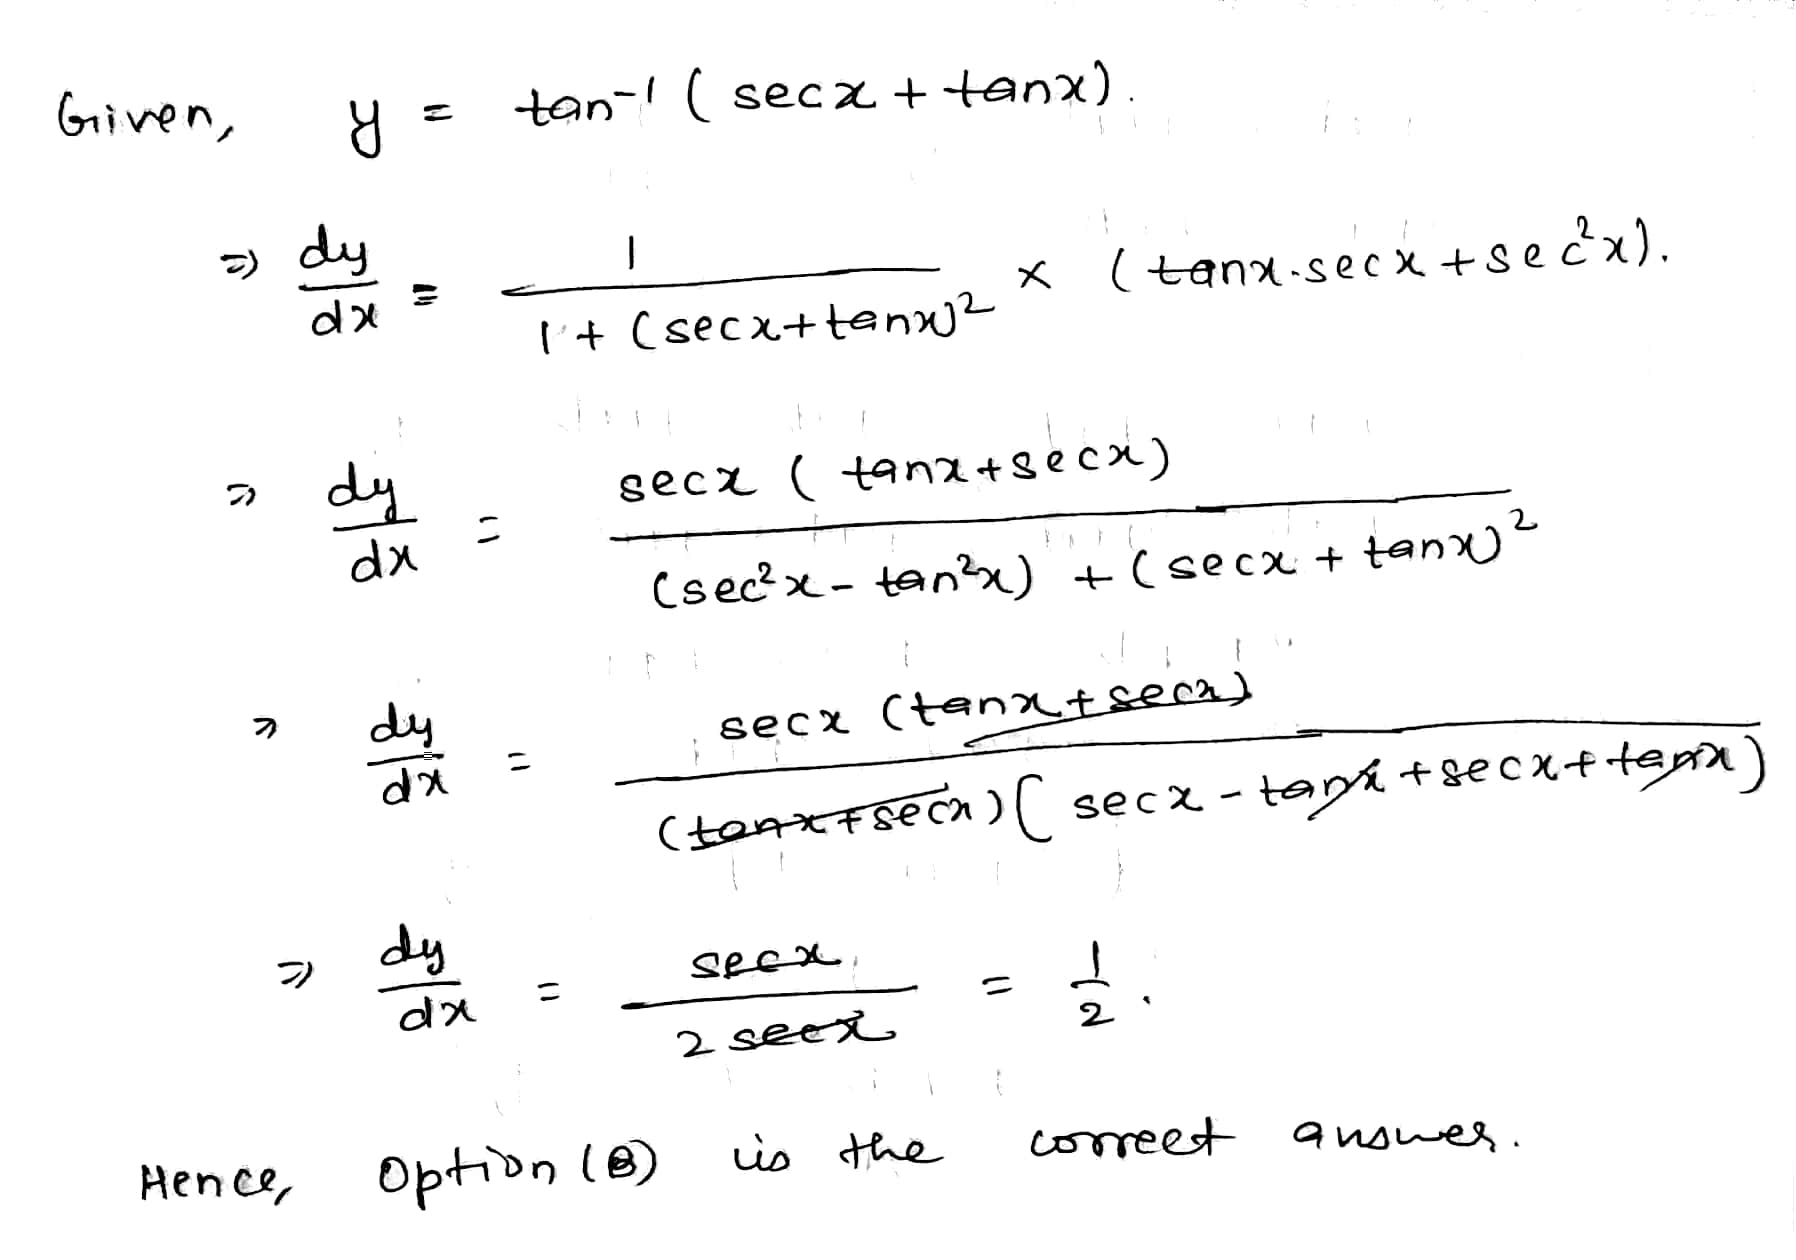 Given, y = tan⁻¹ (secx + tanx).
⇒ dy/dx = 1/(1 + (secx + tanx)²) × (tanx.secx + sec²x).
⇒ dy/dx = secx (tanx + secx)/((sec²x - tan²x) + (secx + tanx)²)
⇒ dy/dx = secx (tanx + secx)/((tanx + secx)(secx - tanx + secx + tanx))
⇒ dy/dx = secx/2 secx = 1/2.
Hence, Option (B) is the correct answer.